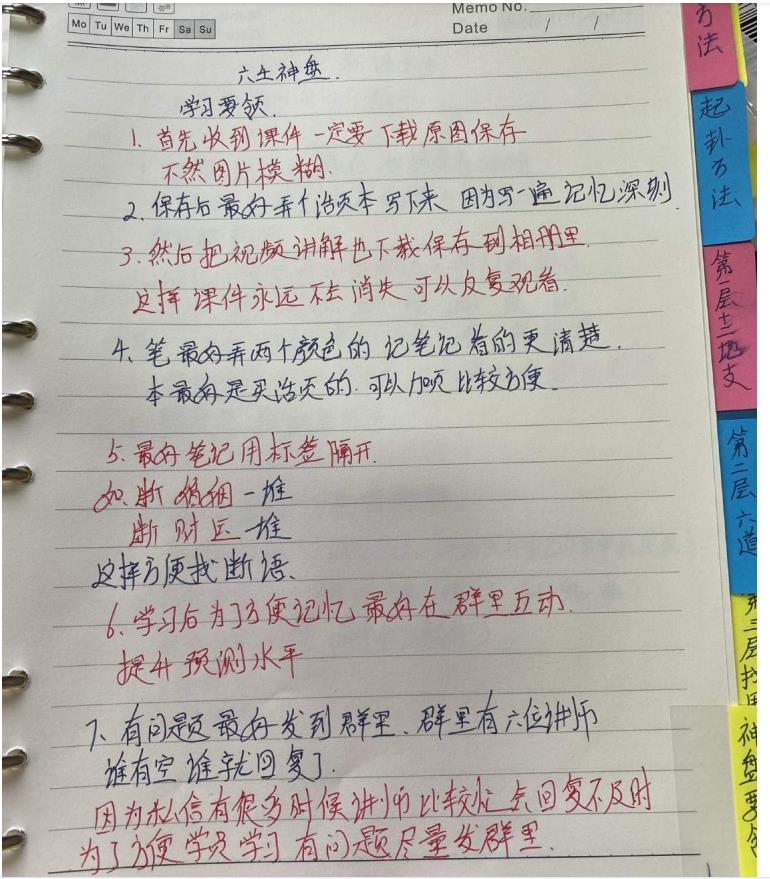 Memo No.
Mo Tu We Th Fr Sa Su
Date / /
六壬神盘.
学习要领.
1. 首先收到课件一定要下载原图保存
不然图片模糊.
2、保存后最好弄个活页本写下来 因为写一遍记忆深刻.
3.然后把视频讲解也下载保存到相册里.
这样课件永远不会消失可以反复观看.
4、笔最好弄两个颜色的 记笔记看的更清楚.
本最好是买活页的.可以加页比较方便.
5.最好笔记用标签隔开.
如.断婚姻一堆
断财运一堆
这样方便找断语、
6、学习后为了方便记忆最好在群里互动.
提升预测水平
7、有问题最好发到群里、群里有六位讲师
谁有空谁就回复了.
因为私信有很多时候讲师比较忙点回复不及时
为了方便学员学习有问题尽量发群里.
方法
起卦方法
第一层十二地支
第二层六道
第三层找
神盘要领